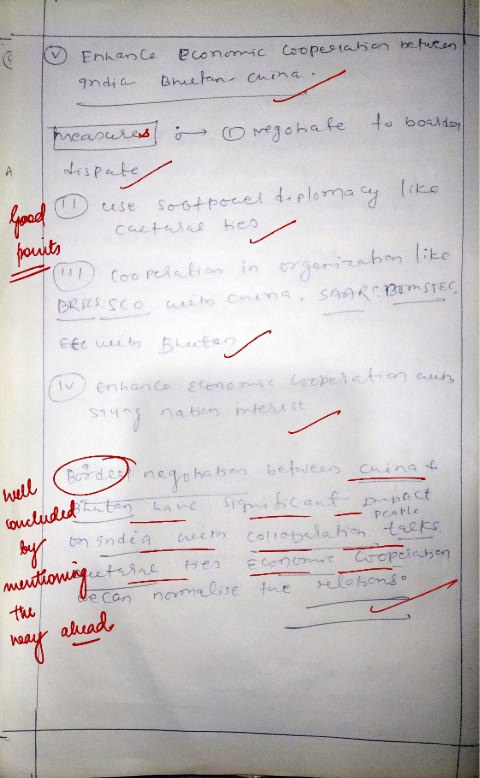 (v) Enhance Economic cooperation between
India Bhutan - China.
measures :→ (i) negotiate to boarder
dispute
(ii) use softpower diplomacy like
cultural ties
Good
points
(iii) cooperation in organization like
BRICS SCO with China, SAARC, BIMSTEC
Etc with Bhutan
(iv) enhance economic cooperation with
nation interest
Border negotiation between China &
Bhutan have significant impact
on India with collaboration people talks.
cultural ties Economic Cooperation
we can normalise the relations.
well
concluded
by
mentioning
the
way ahead